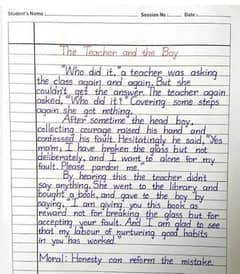 Student's Name :
Session No :
Date :
The Teacher and the Boy
"Who did it," a teacher was asking
the class again and again. But she
couldn't get the answer. The teacher again
asked, "Who did it?" Covering some steps
again she got nothing.
"After sometime the head boy,
collecting courage raised his hand and
confessed his fault. Hesitatingly he said, "Yes
mam, I have broken the glass but not
deliberately, and I want to alone for my
fault. Please pardon me."
By hearing this the teacher didnt
say anything. She went to the library and
bought a book, and gave to the boy by
saying, "I am giving you this book a
reward not for breaking the glass but for
accepting your fault. And I am glad to see
that my labour of nurturing good habits
in you has worked."
Moral: Honesty can reform the mistake.